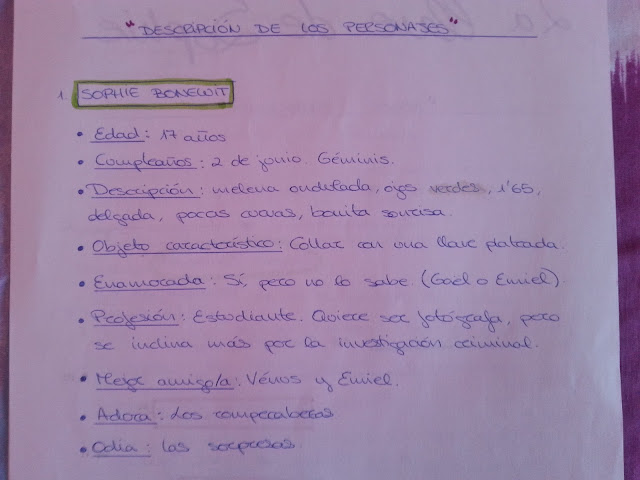 "DESCRIPCIÓN DE LOS PERSONAJES"
1. SOPHIE BONEWIT
• Edad: 17 años
• Cumpleaños: 2 de junio. Géminis.
• Descripción: melena ondulada, ojos verdes, 1'65,
delgada, pocas curvas, bonita sonrisa.
• Objeto característico: Collar con una llave plateada.
• Enamorada: Sí, pero no lo sabe. (Gaël o Emiel)
• Profesión: Estudiante. Quiere ser fotógrafa, pero
se inclina más por la investigación criminal.
• Mejor amigo/a: Vénus y Emiel.
• Adora: Los rompecabezas
• Odia: las sorpresas.